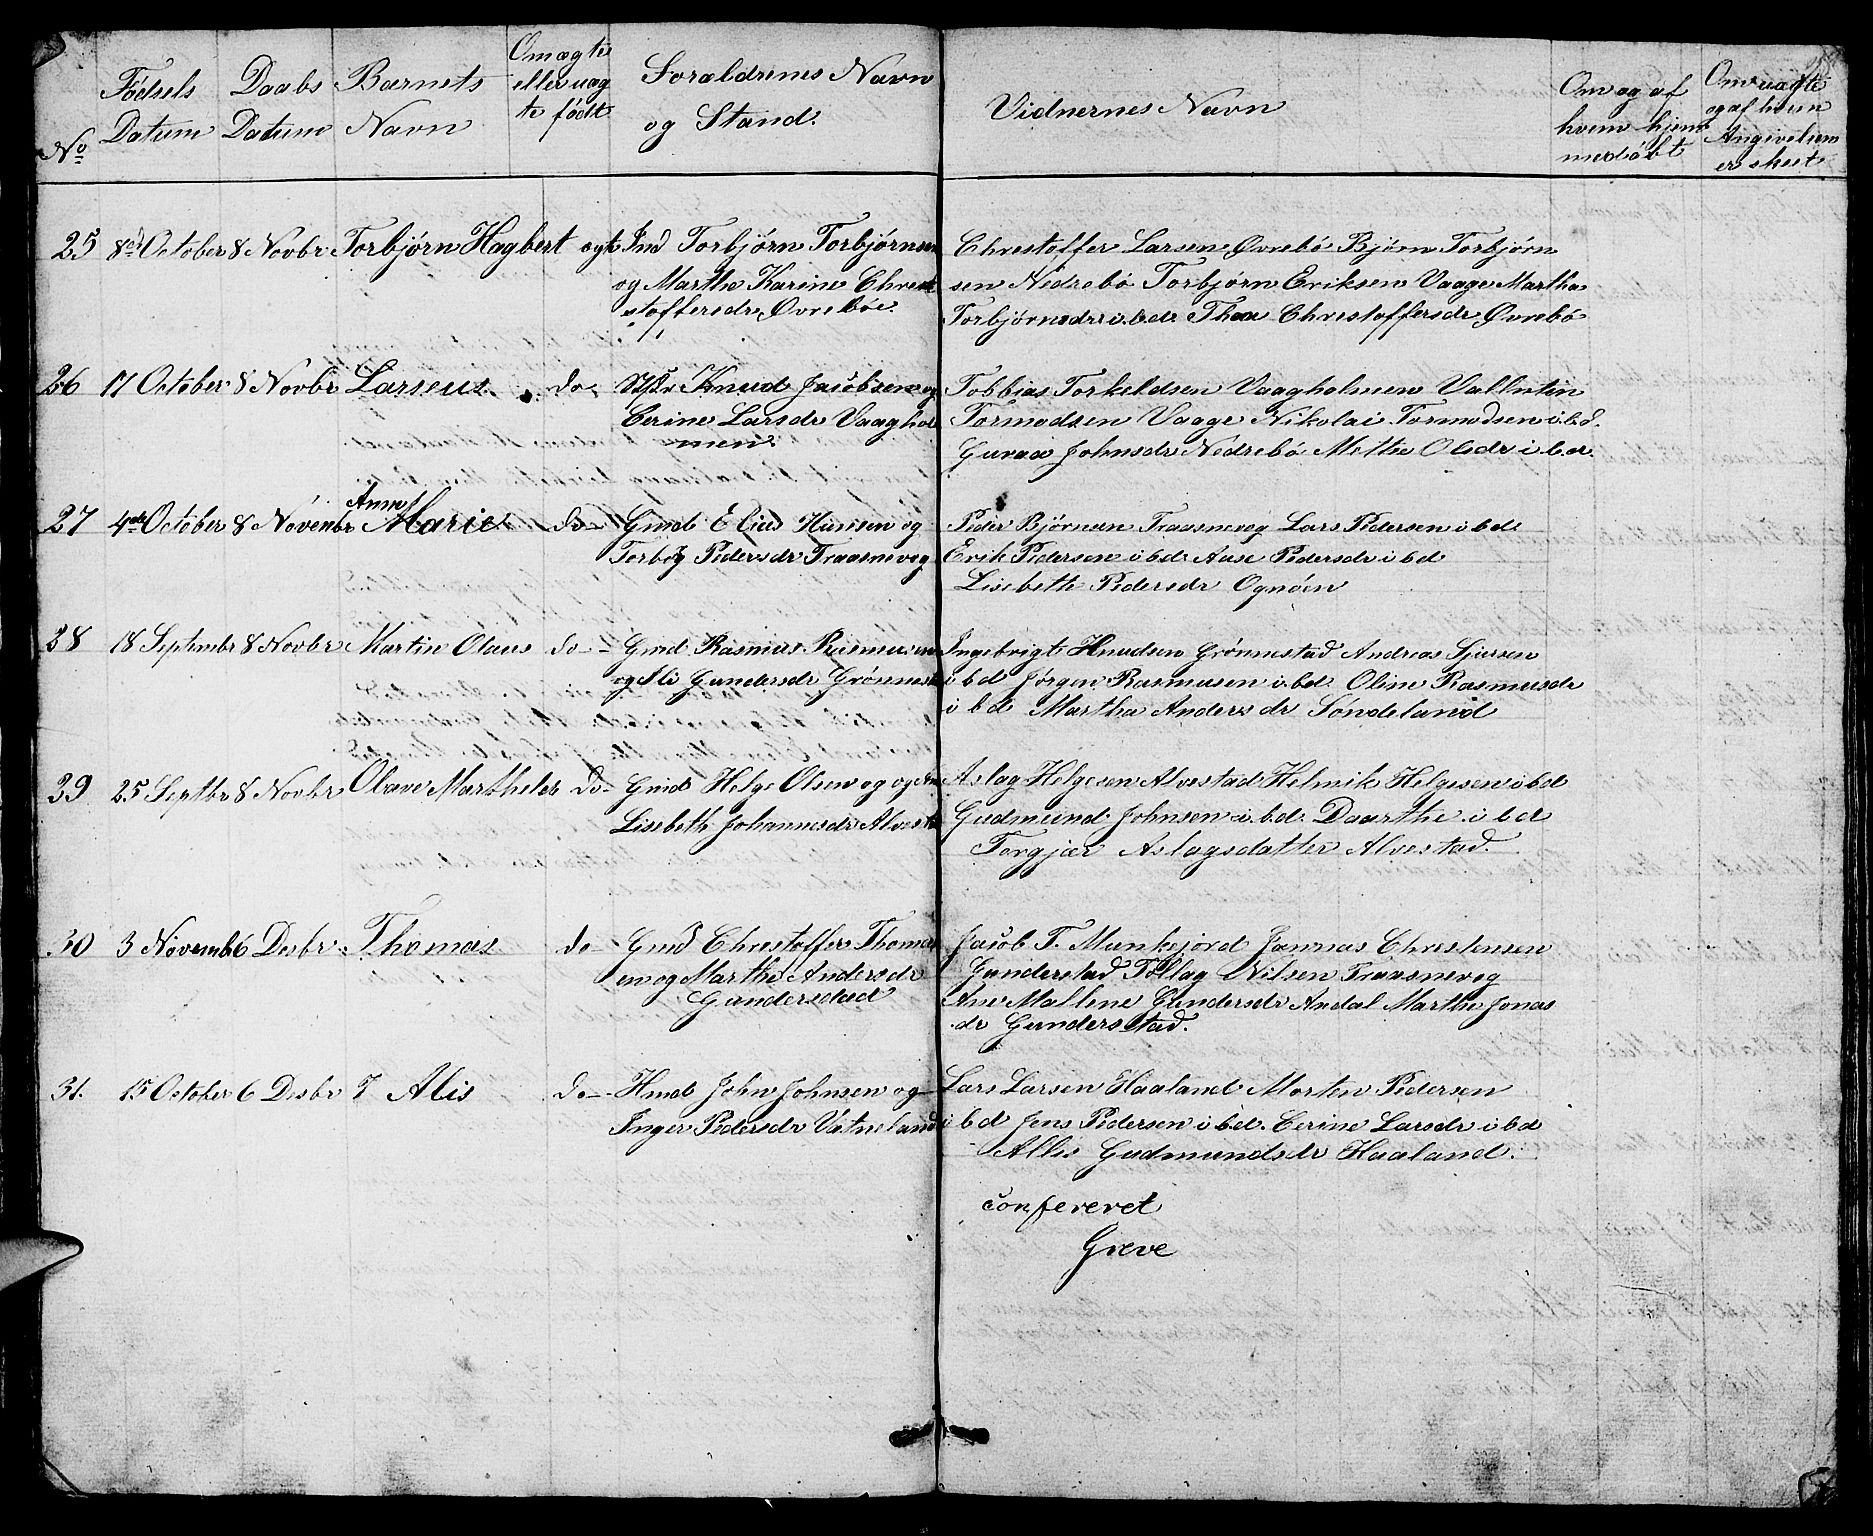 No
Fødsels Datum
Daabs Datum
Barnets Navn
Om ægte eller uægte født
Forældrenes Navn og Stand.
Vidnernes Navn
Om og af hvem hjemmedøbt
Om uægte og af hvem Angivelsen er skeet
25 8de October 8 Novbr Torbjørn Hagbert ægt Ind Torbjørn Torbjørnsen
og Marthe Karine Chrest
stoffersdr Øvrebøe.
Chrestoffer Larsen Øvrebø Bjørn Torbjørn
sen Nedrebø Torbjørn Eriksen Vaage Martha
Torbjørnsdr i.b.d. Thea Chrestoffersdr Øvrebø
26 17 October 8 Novbr Larseus do Knud Jacobsen og
Cerine Larsdr Vaaghol
men.
Tobbias Torkeldsen Vaagholmen Vallintin
Tormodsen Vaage Nikolai Tormodsen i.b.d.
Guroa Johnsdr Nedrebø Methe Olsdr i b.d.
27 4de October 8 Novembr Anne Marie do Gmd Elias Hansen og
Torborg Pedersdr Traasneveg
Peder Bjørnsen Traasneveg Lars Pedersen i b d
Erik Pedersen i b d Aase Pedersdr i b d
Lisebeth Pedersdr Ognøen
28 18 Septembr 8 Novbr Martin Olaus do Gmd Rasmus Rasmusen
og Gundersdr Grønnest
Ingebrigt Knudsen Grønnestad Andreas Sjursen
i b d Jørgen Rasmusen i.b.d. Oline Rasmusdr
i b d Martha Andersdr Søndeland
29 25 Septbr 8 Novbr Olave Marthelea do Gmd Helge Olsen og og An
Lisebeth Johannesdr Alvesta
Aslag Helgesen Alvestad Helmik Helgesen i b d
Gudmund Johnsen i.b.d. Daarthe i b d
Torgjær Aslagsdatter Alvestad.
30 3 Novemb 6 Desbr Thomas do Gmd Chrestoffer Thomas
en og Marthe Andersdr
Gunderstad
Jacob T. Munkejord Jonnas Chrestensen
Gunderstad Tollag Nilsen Traasneveg
Ane Mallene Gundersdr Andal Marthe Jonas
dr Gunderstad.
31. 15 October 6 Desbr T Alis do Hmd John Johnsen og
Inger Pedersdr Vatneland
Lars Larsen Haaland Morten Pedersen
i b d Jens Pedersen i b.d. Cerine Larsdr i b d
Allis Gudmundsdr Haaland.
confereret
Greve